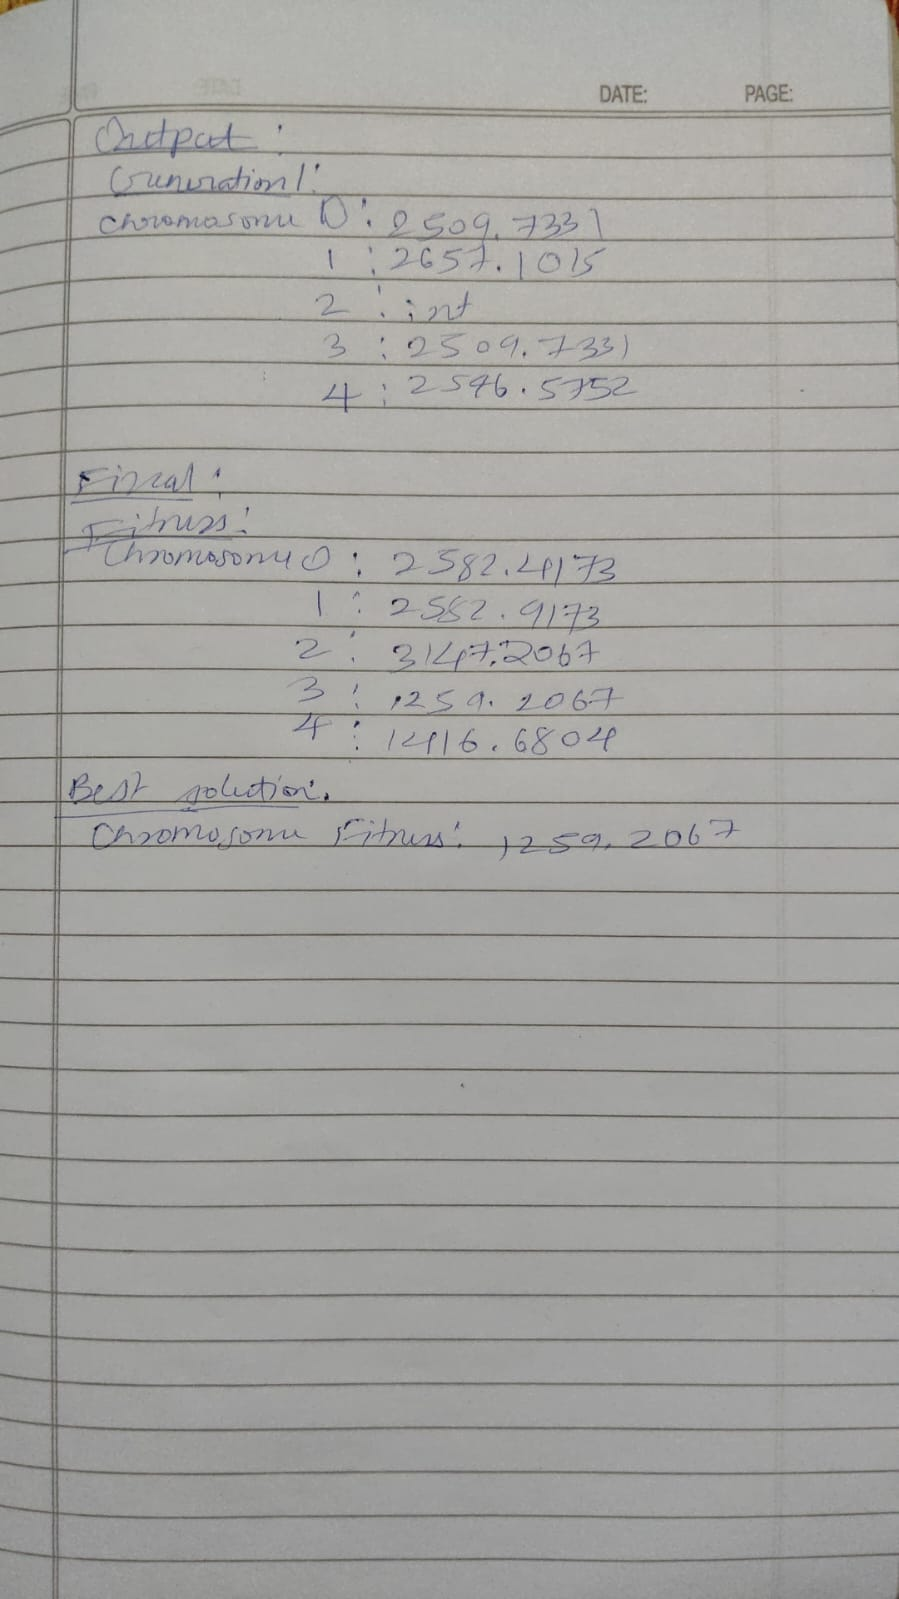 DATE: PAGE:
Output :
Generation 1:
Chromosome 0 : 2509.7331
1 : 2657.1015
2 : int
3 : 2509.7331
4 : 2596.5752
Final :
Fitness :
Chromosome 0 : 2582.4173
1 : 2582.9173
2 : 3147.2067
3 : 1259.2067
4 : 1416.6804
Best solution.
Chromosome Fitness : 1259.2067